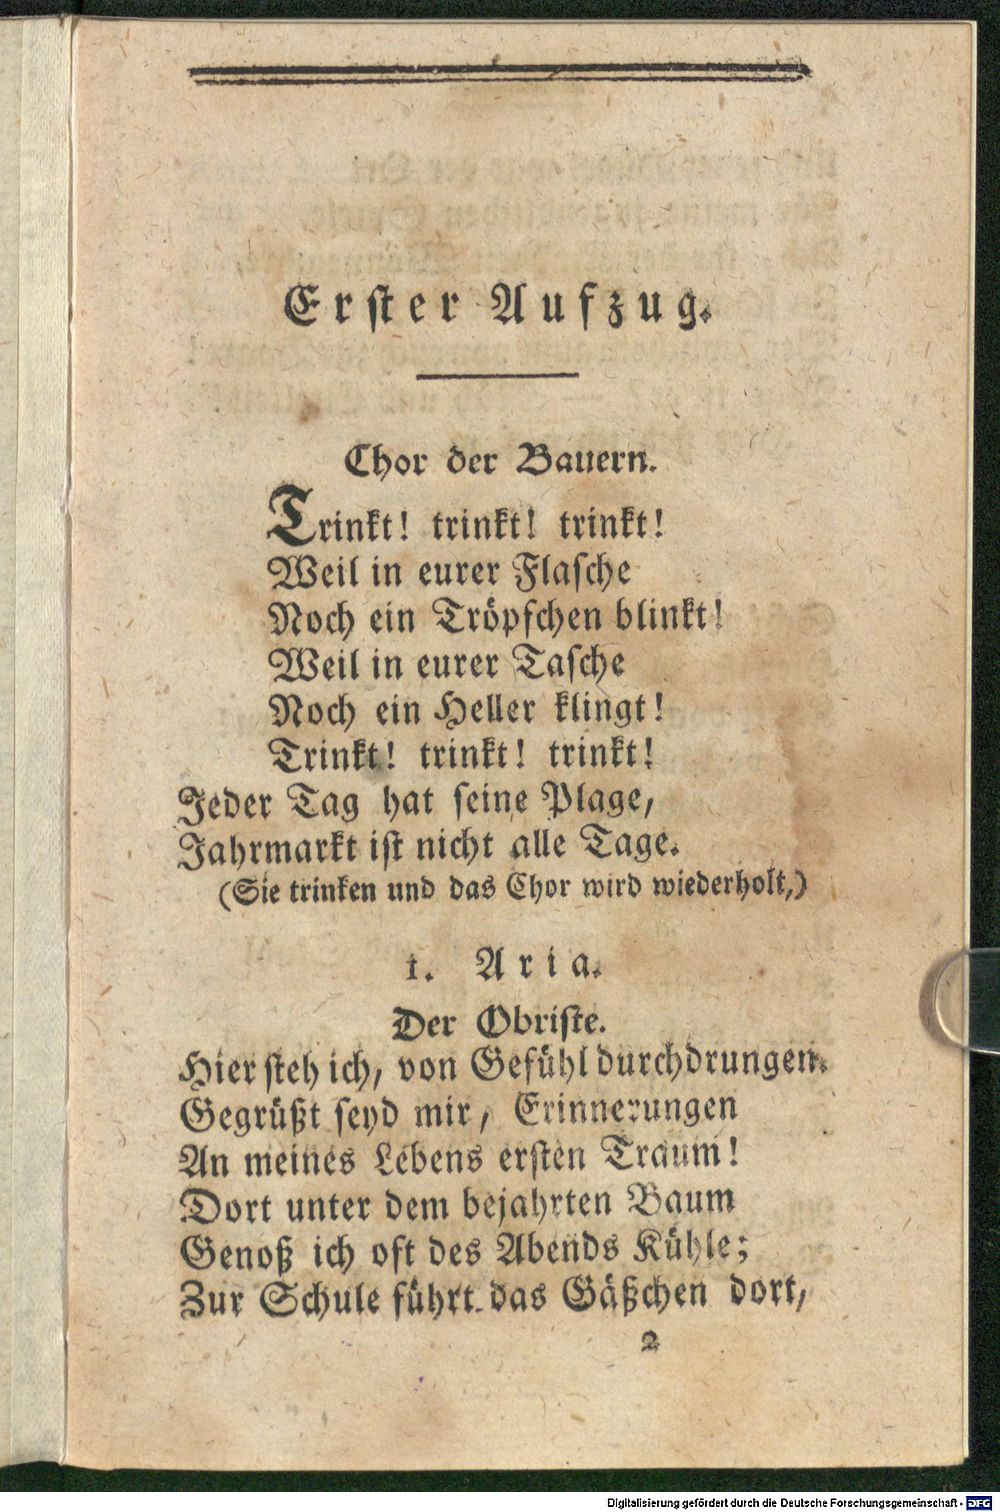 Erster Aufzug.
Chor der Bauern.
Trinkt! trinkt! trinkt!
Weil in eurer Flasche
Noch ein Tröpfchen blinkt!
Weil in eurer Tasche
Noch ein Heller klingt!
Trinkt! trinkt! trinkt!
Jeder Tag hat seine Plage,
Jahrmarkt ist nicht alle Tage.
(Sie trinken und das Chor wird wiederholt,)
1. Aria.
Der Obriste.
Hier steh ich, von Gefühl durchdrungen.
Gegrüßt seyd mir, Erinnerungen
An meines Lebens ersten Traum!
Dort unter dem bejahrten Baum
Genoß ich oft des Abends Kühle;
Zur Schule führt das Gäßchen dort,
2
Digitalisierung gefördert durch die Deutsche Forschungsgemeinschaft - DFG